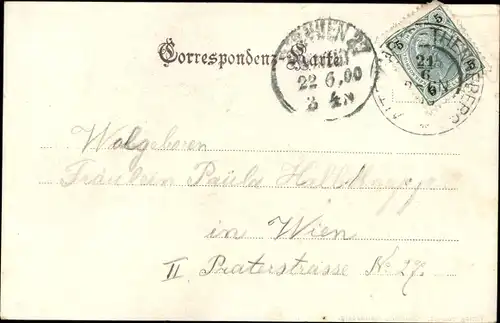 Correspondenz-Karte
22 6.00
3 4N
5 5
21
6
6N
Wolgeboren
Fräulein Paula
in Wien
II Praterstrasse No 27.